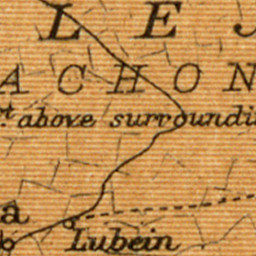 L E J
A C H O N
rt above surroundi
a
Lubein